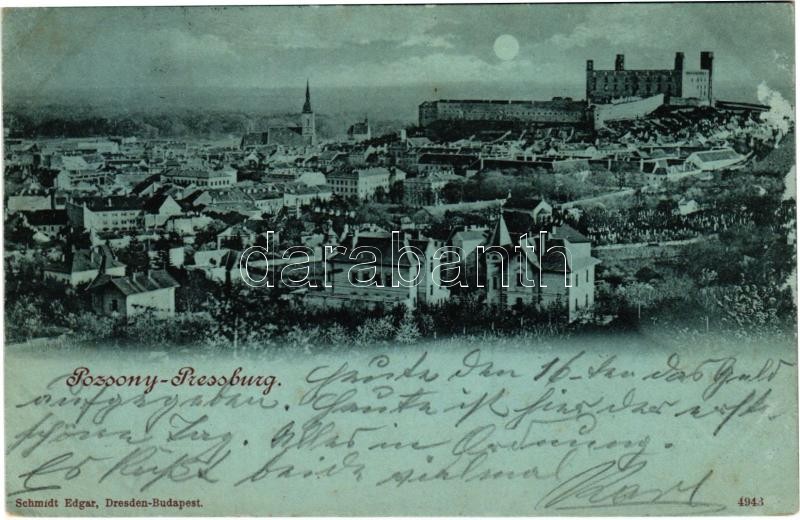 darabanth
Pozsony-Pressburg.
Heute den 16-ten das Geld
aufgegeben. Heute ist hier der erste
schöne Tag. Alles in Ordnung.
Es küßt beide vielmal
Karl
Schmidt Edgar, Dresden-Budapest.
4943